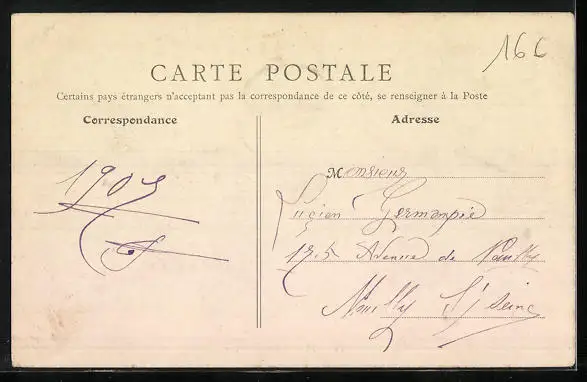 16 C
CARTE POSTALE
Certains pays étrangers n'acceptant pas la correspondance de ce côté, se renseigner à la Poste
Correspondance
Adresse
1905
Monsieur
Lucien Germanpié
175 Avenue de Neuilly
Neuilly S/ Seine